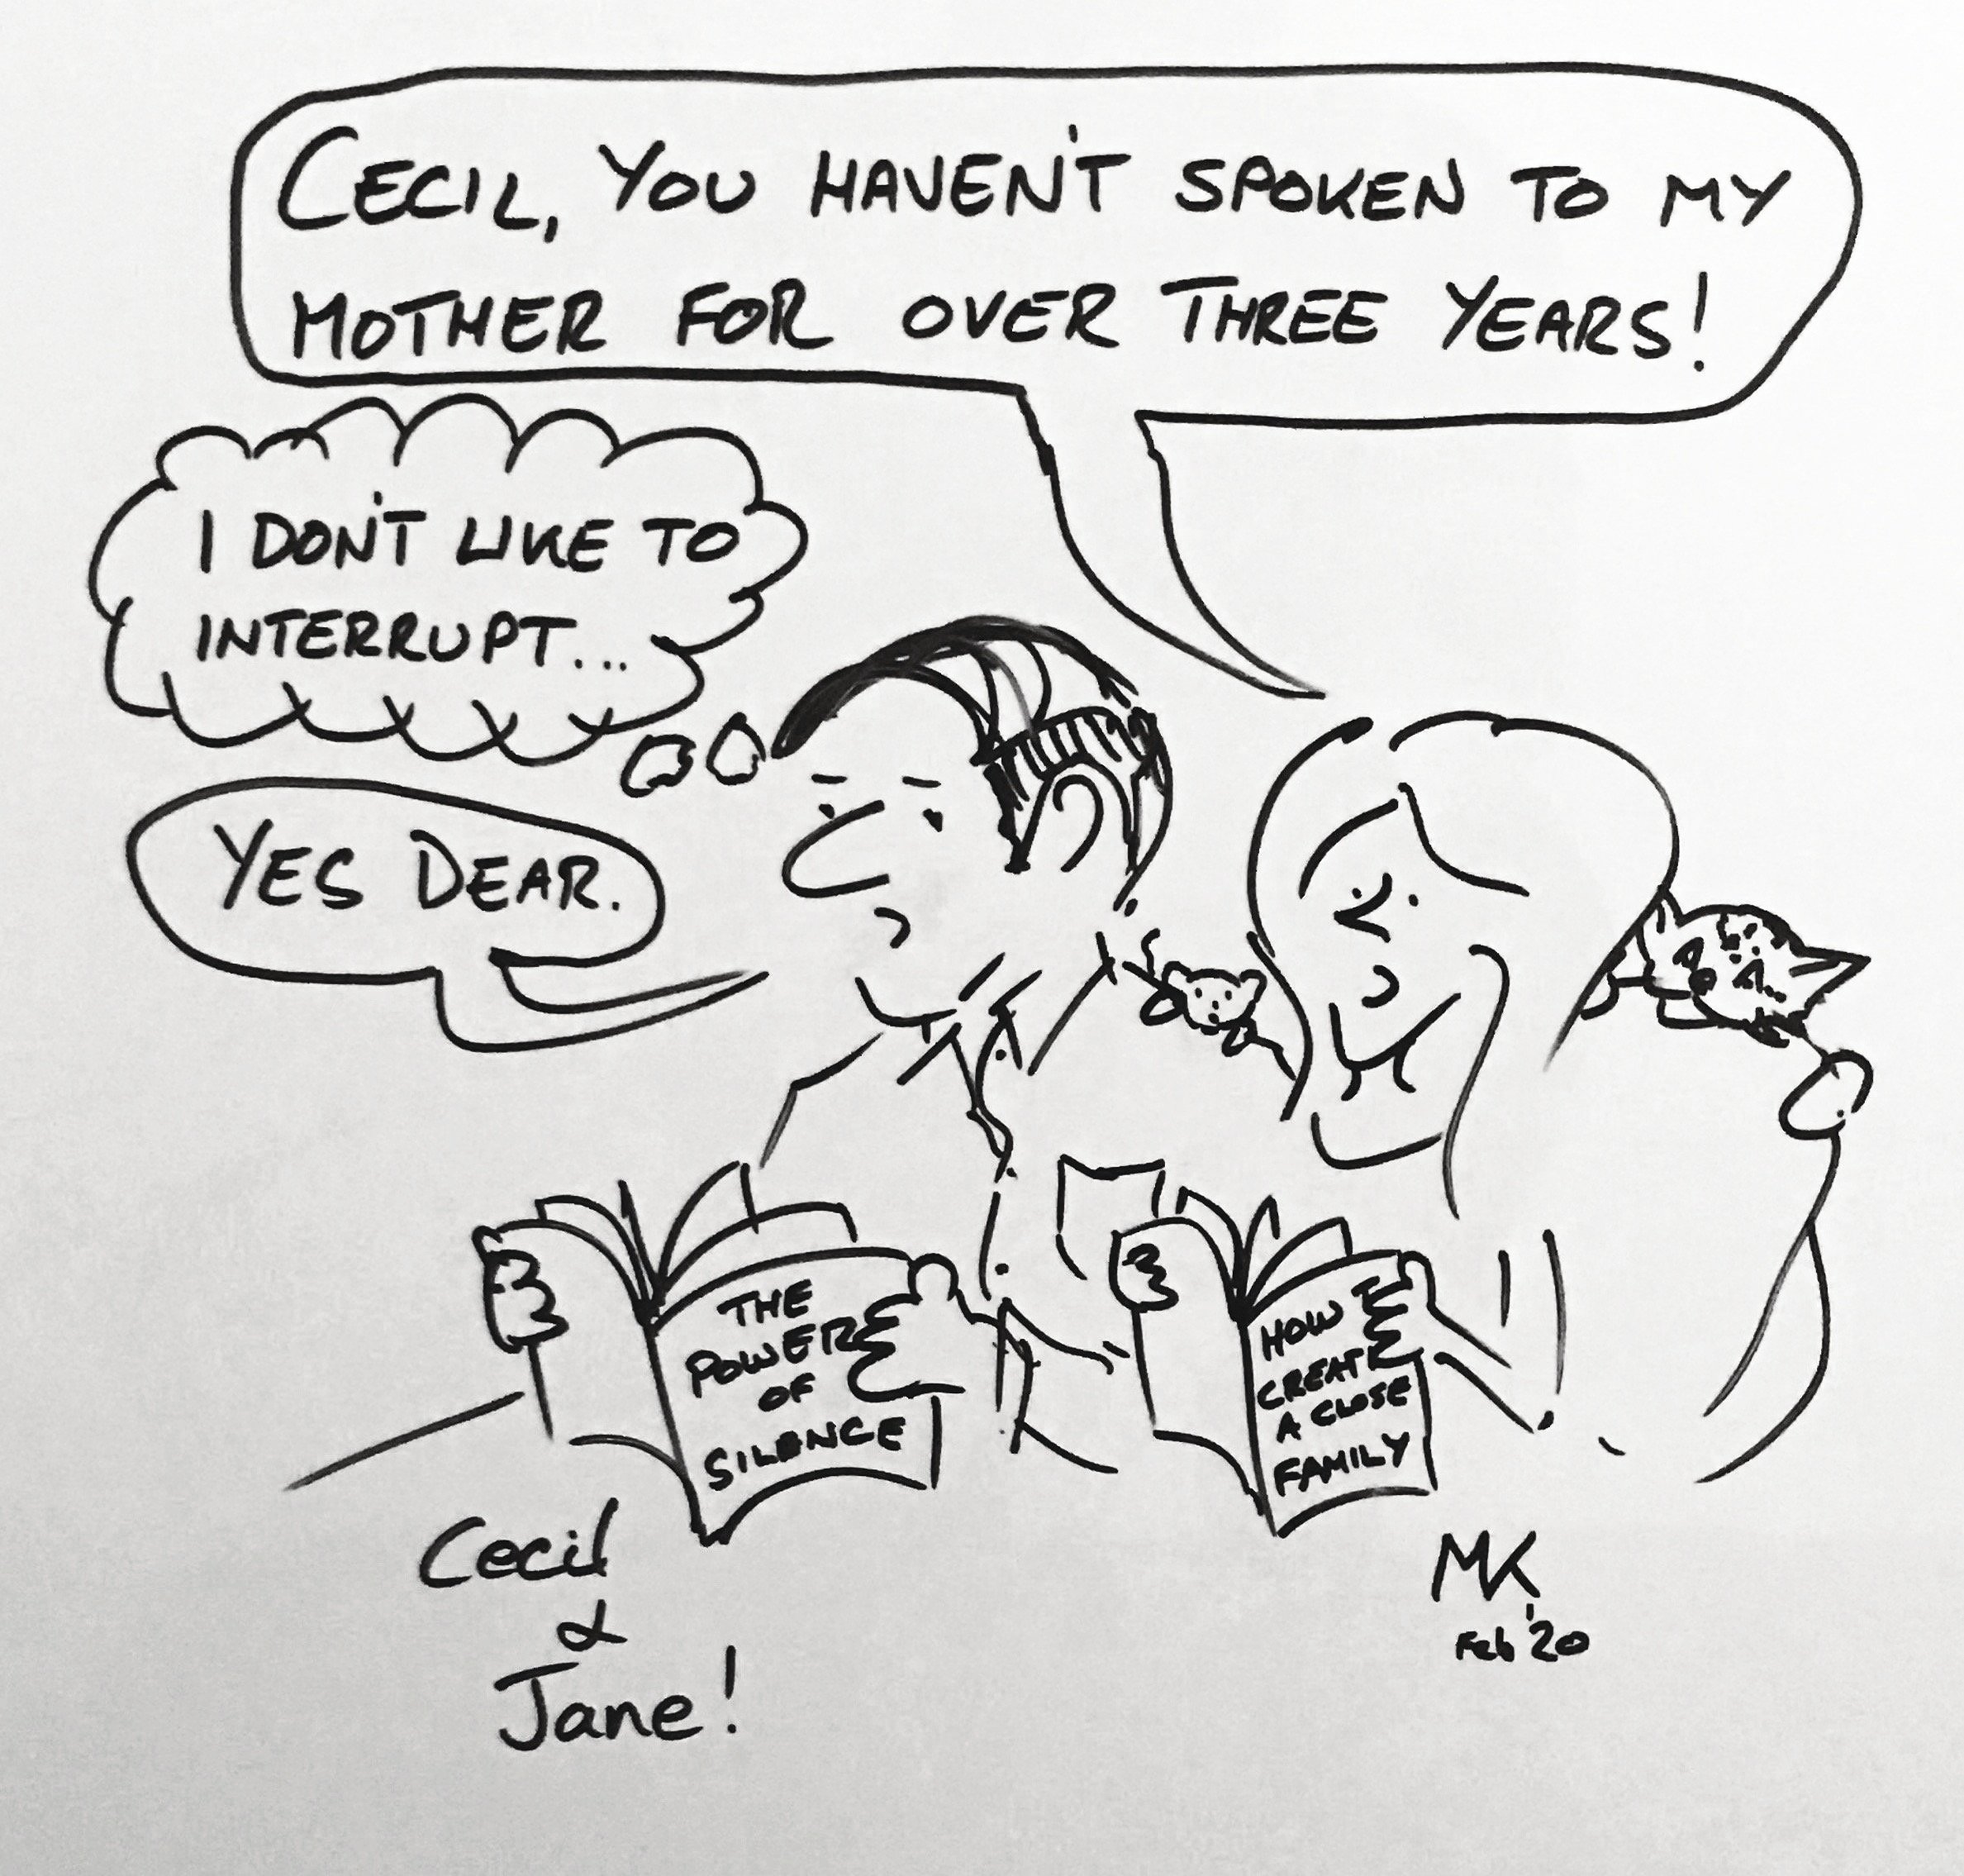 CECIL, YOU HAVEN'T SPOKEN TO MY
MOTHER FOR OVER THREE YEARS!
I DON'T LIKE TO
INTERRUPT...
YES DEAR.
THE
POWER
OF
SILENCE
HOW TO
CREATE
A CLOSE
FAMILY
Cecil
&
Jane!
MK
Feb '20